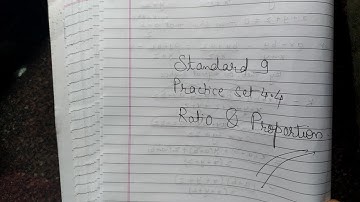 Standard 9
Practice Set 4.4
Ratio & Proportion